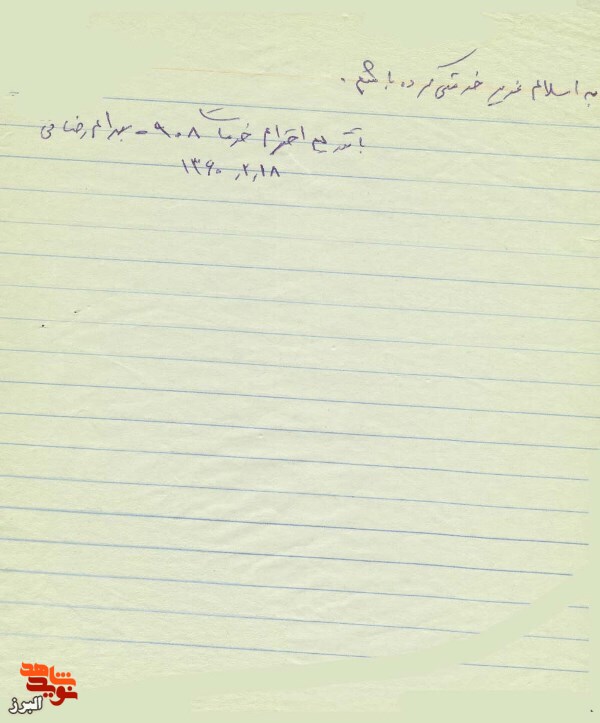 به اسلام عزیز خدمتی کرده باشیم.
با تقدیم احترام خدمات ۹۰۸ - بهرام رضائی
۱۳۶۰,۲,۱۸
نوید شاهد
البرز